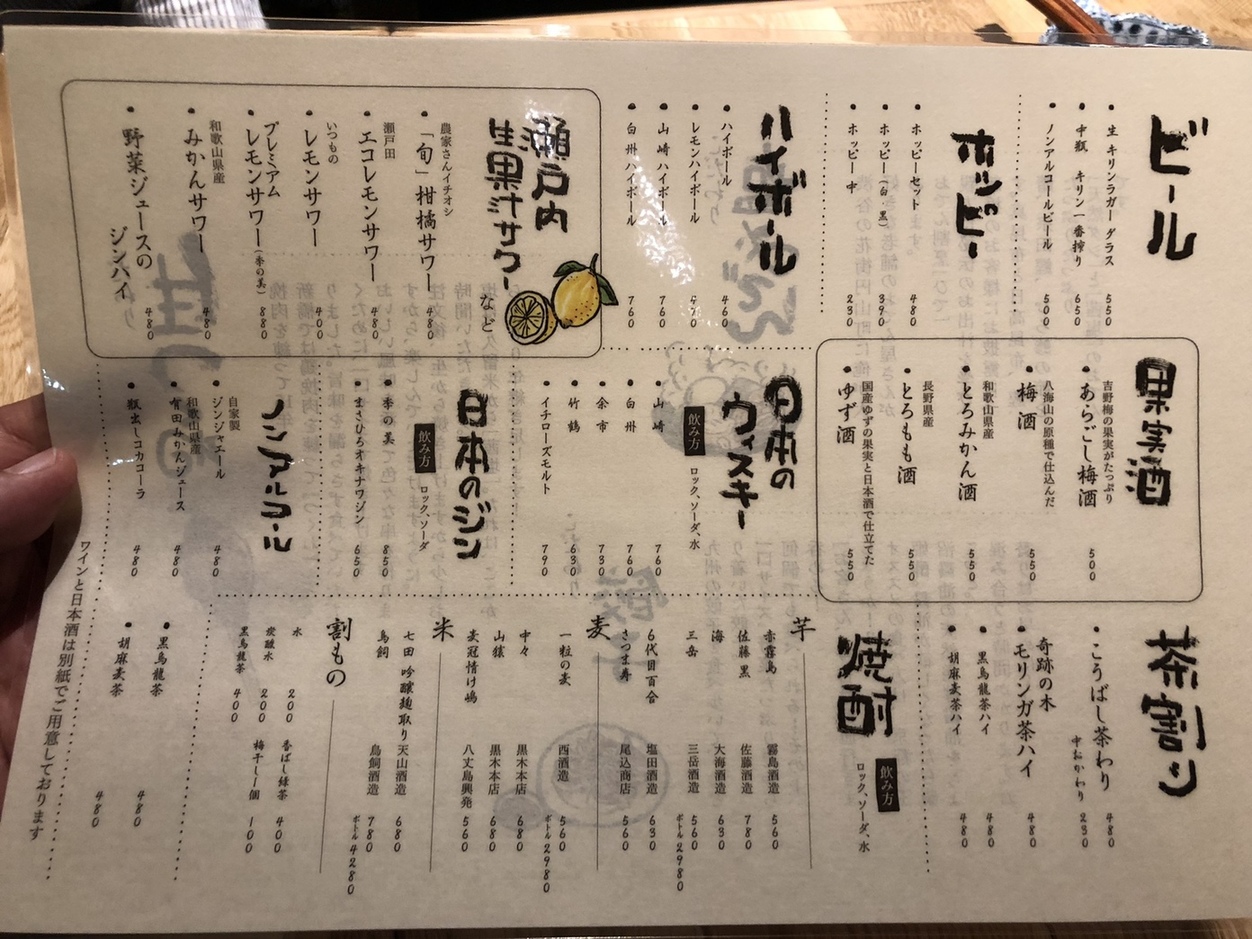 ビール
・生 キリンラガー グラス 550
・中瓶 キリン一番搾り 650
・ノンアルコールビール 500
ホッピー
・ホッピーセット 480
・ホッピー(白 黒) 390
・ホッピー 中 230
ハイボール
・ハイボール 460
・レモンハイボール 470
・山崎ハイボール 760
・白州ハイボール 760
瀬戸内
生果汁サワー
など
農家さんイチオシ
・「旬」柑橘サワー 480
瀬戸田
・エコレモンサワー 480
いつもの
・レモンサワー 400
プレミアム
・レモンサワー(季の美) 880
和歌山県産
・みかんサワー 480
・野菜ジュースの
ジンハイ 480
果実酒
吉野梅の果実がたっぷり
・あらごし梅酒 500
八海山の原種で仕込んだ
・梅酒 550
和歌山県産
・とろみかん酒 550
長野県産
・とろもも酒 550
国産ゆずの果実と日本酒で仕立てた
・ゆず酒 550
日本の
ウィスキー
飲み方 ロック、ソーダ、水
・山崎 760
・白州 760
・余市 730
・竹鶴 630
・イチローズモルト 790
日本のジン
飲み方 ロック、ソーダ
・季の美 850
・まさひろオキナワジン 650
ノンアルコール
自家製
・ジンジャエール 480
和歌山県産
・有田みかんジュース 480
・瓶出しコカコーラ 480
茶割り
・こうばし茶わり 480
中おかわり 230
奇跡の木
・モリンガ茶ハイ 480
・黒烏龍茶ハイ 480
・胡麻麦茶ハイ 480
焼酎
飲み方 ロック、ソーダ、水
芋
赤霧島 霧島酒造 560
佐藤 黒 佐藤酒造 780
海 大海酒造 630
三岳 三岳酒造 560
ボトル 2980
6代目百合 塩田酒造 630
さつま寿 尾込商店 560
麦
一粒の麦 西酒造 560
ボトル 2980
中々 黒木本店 680
山猿 黒木本店 680
麦冠情け嶋 八丈島興発 560
米
七田 吟醸麹取り 天山酒造 680
鳥飼 鳥飼酒造 780
ボトル 4280
割もの
水 200
炭酸水 200
黒烏龍茶 400
香ばし緑茶 400
梅干し1個 100
・黒烏龍茶 480
・胡麻麦茶 480
ワインと日本酒は別紙でご用意しております